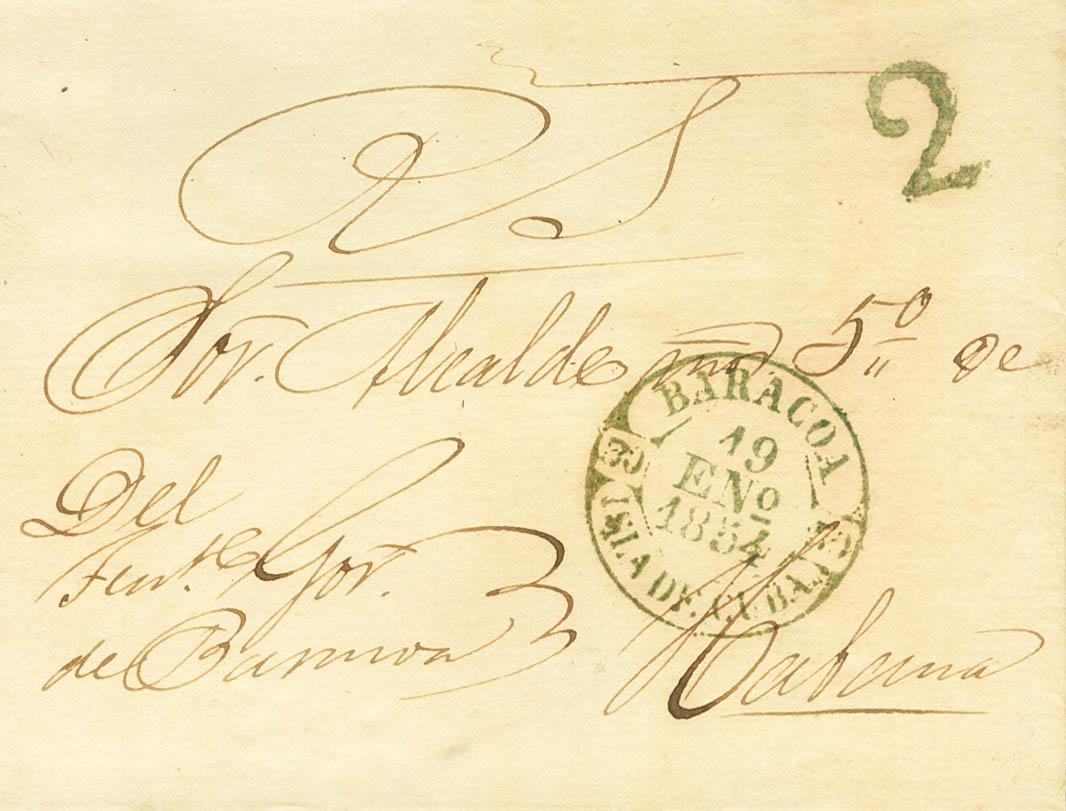 2
RS
Sor. Alcalde mor 5º de
BARACOA
19
ENº
1854
ISLA DE CUBA
Del
Tente Gor.
de Baracoa
Habana